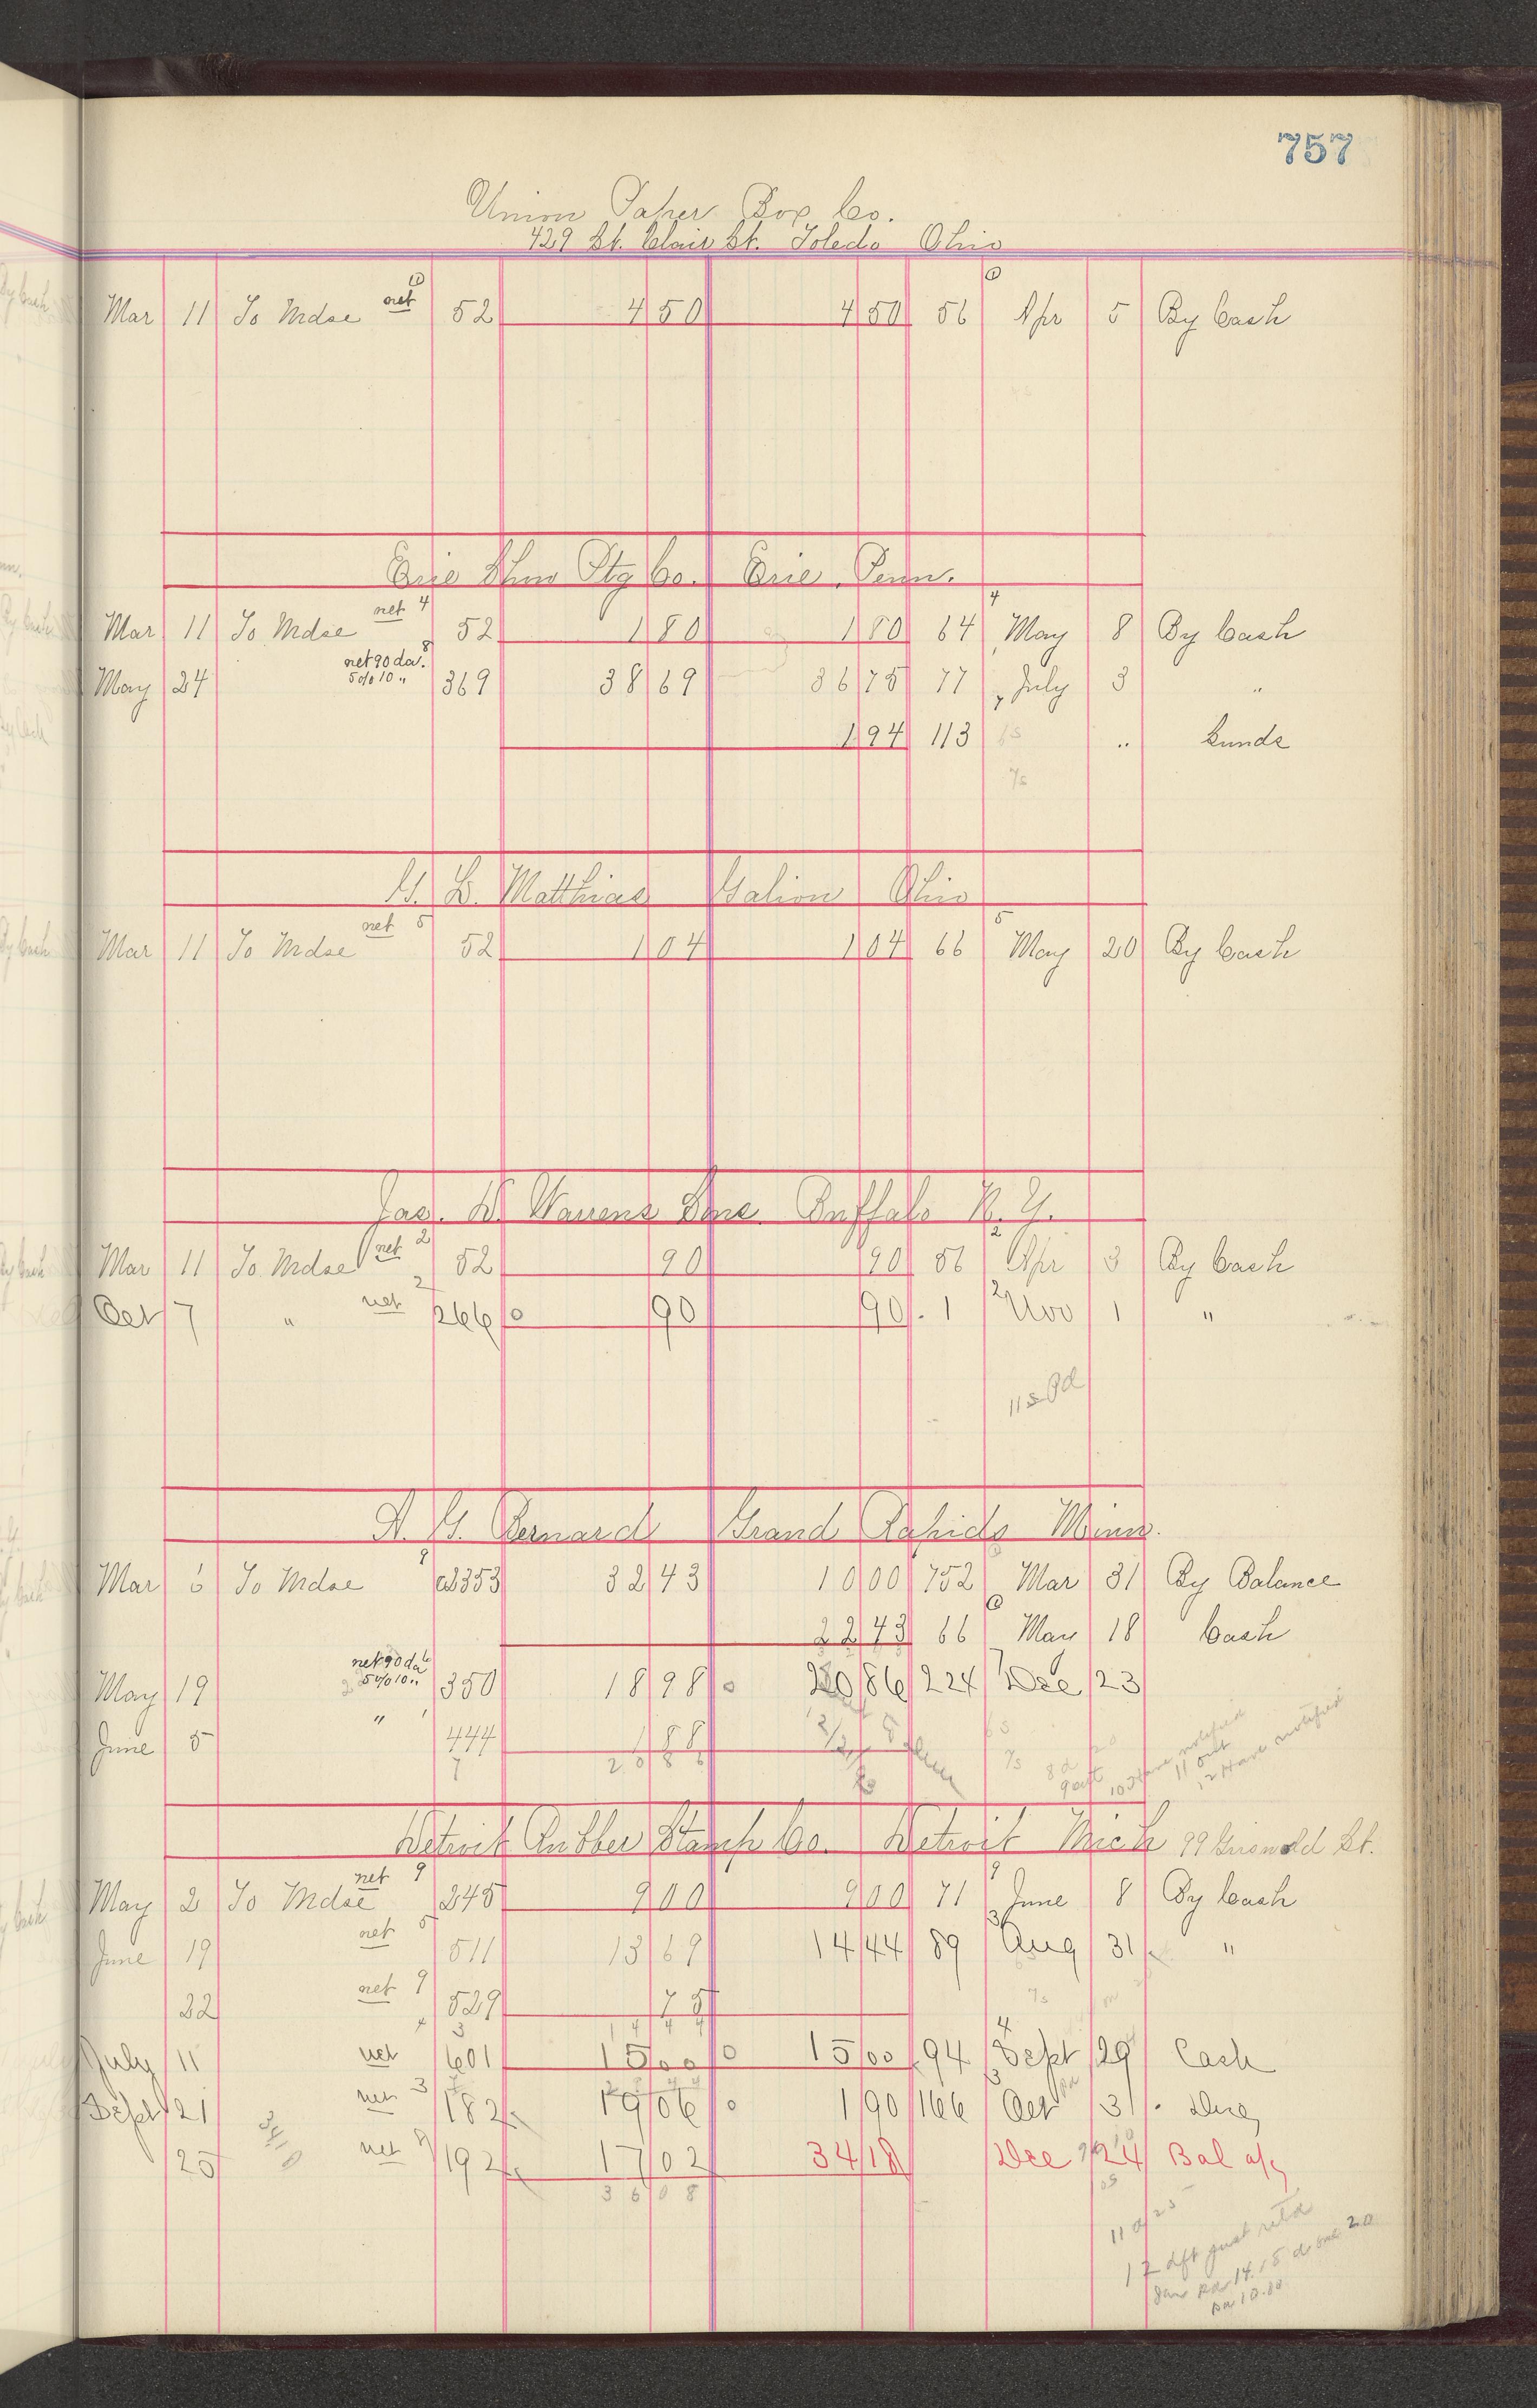 757
Union Paper Box Co.
429 St. Clair St. Toledo Ohio
Mar 11 To Mdse net 52 4 50 4 50 56 Apr 5 By Cash
Erie Show Ptg Co. Erie, Penn.
Mar 11 To Mdse net 4 52 1 80 1 80 64 4 May 8 By Cash
May 24 net 90 da. 5% 10 " 8 369 38 69 36 75 77 7 July 3 "
1 94 113 6s " Sunds
7s
G. D. Matthias Galion Ohio
Mar 11 To Mdse net 5 52 1 04 1 04 66 5 May 20 By Cash
Jas. D. Warrens Sons. Buffalo N. Y.
Mar 11 To Mdse net 2 52 90 90 56 2 Apr 3 By Cash
Oct 7 " net 2 266 90 90 1 2 Nov 1 "
11 s Pd
A. G. Bernard Grand Rapids Minn.
Mar 6 To Mdse 9 353 32 43 10 00 752 Mar 31 By Balance
22 43 66 May 18 Cash
May 19 net 90 da 5% 10 " 350 18 98 20 86 224 Dec 23
June 5 " 444 1 88 6s
7 20 86 7s 8d 10 Have notified 11 out 12 Have notified
Detroit Rubber Stamp Co. Detroit Mich 99 Griswold St.
May 2 To Mdse net 9 245 9 00 9 00 71 9 June 8 By Cash
June 19 net 5 511 13 69 14 44 89 3 Aug 31 "
22 net 9 529 75 7s
3 14 44 4
July 11 net 601 15 00 15 00 94 Sept 29 Cash
Sept 21 net 3 182 19 06 1 90 166 3 Oct 31 Due
25 3418 net 192 17 02 34 18 Dec 24 Bal a/c
36 08
11 d 23
12 dft just retd